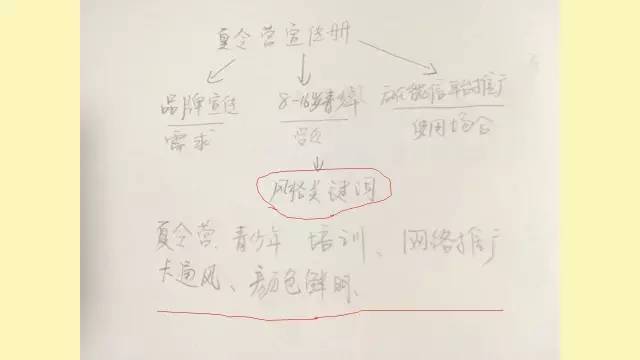 夏令营宣传册
品牌宣传
需求
8-16岁青少年
受众
在微信平台推广
使用场合
风格关键词
夏令营、青少年 培训、网络推广
卡通风、颜色鲜明、